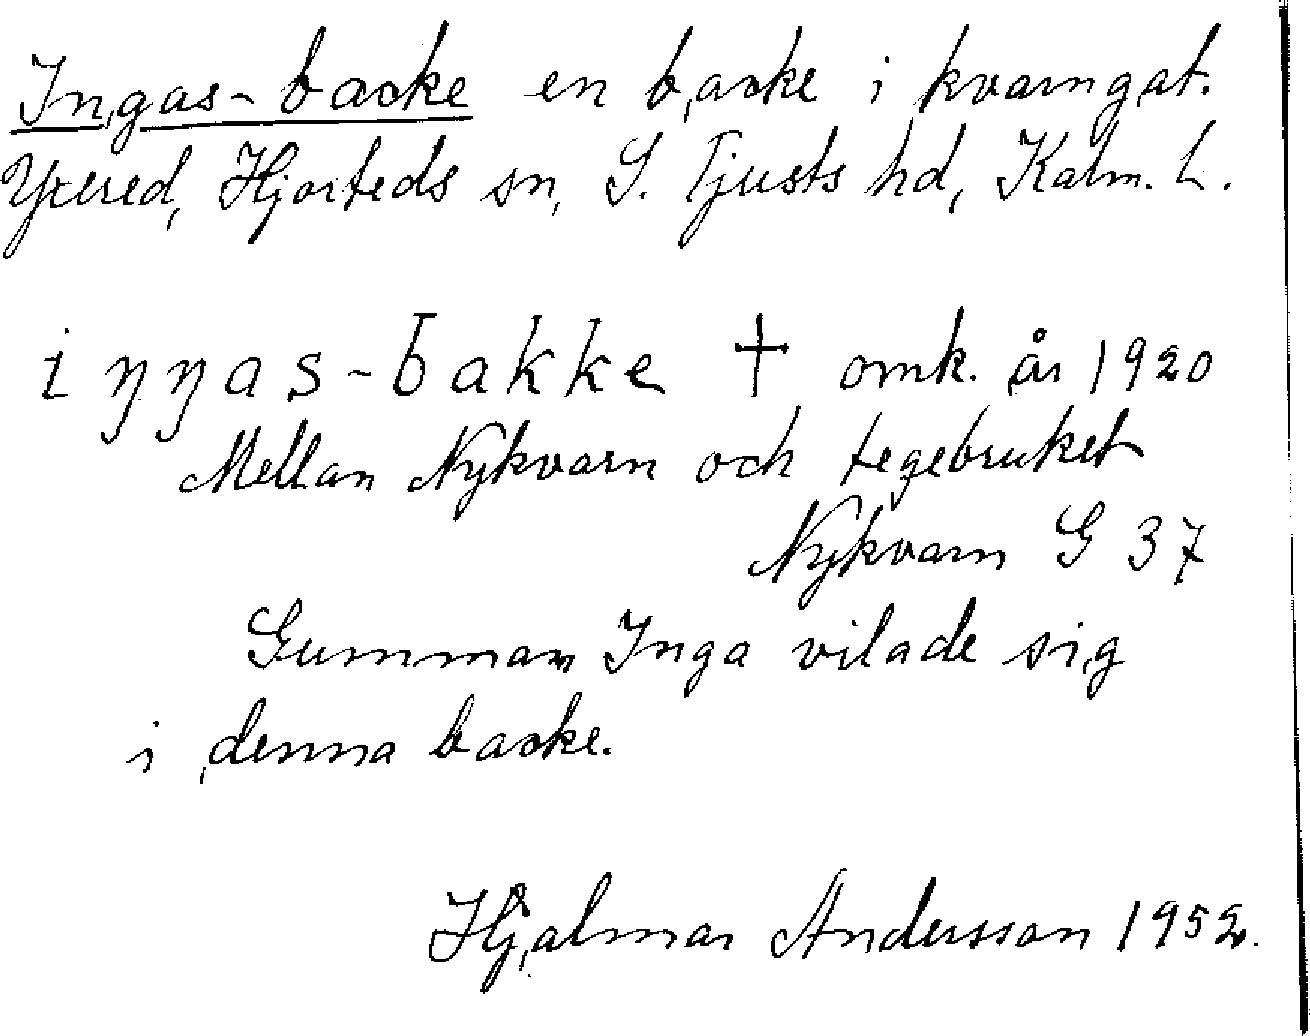 Ingas-backe en backe i kvarngat.
Yxered, Hjorteds sn, S. Tjusts hd, Kalm. L.
iŋŋas-bakke † omk. år 1920
Mellan Nykvarn och tegebruket
Nykvarn G 37
Gumman Inga vilade sig
i denna backe.
Hjalmar Andersson 1952.